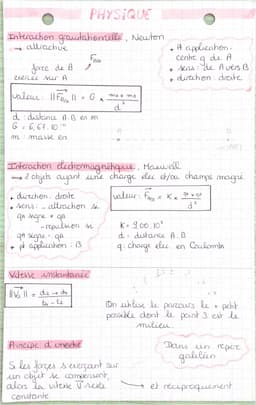 PHYSIQUE
Interaction gravitationnelle, Newton
→ attractive
F B/A
force de B
exercée sur A
• A application.
centre g de A
• sens : de A vers B
• direction : droite
valeur : ||F B/A|| = G × mA × mB / d²
d : distance A.B en m
G = 6,67.10
m : masse en
Interaction électromagnétique, Maxwell
→ 2 objets ayant une charge élec et/ou champs magné
• direction : droite
• sens : - attraction si
qA signe ≠ qB
- repulsion si
qA signe = qB
• pt application : B
valeur : F B/A = K × qA × qB / d²
K = 9.00.10⁹
d : distance A.B
q : charge élec en Coulombs
Vitesse instantanée
On utilise le parcours le + petit
possible dont le point 3 est le
milieu.
Principe d'inertie
Dans un repère
galiléen
Si les forces s'exerçant sur
un objet se compensent,
alors la vitesse V reste
constante
→ et réciproquement